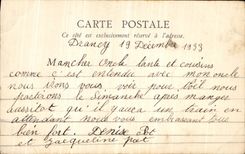 CARTE POSTALE
Ce côté est exclusivement réservé à l'adresse.
Drancy 19 Décembre 1953
Mancher Oncle tante et cousins
comme c'est entendu avec mon oncle
nous irons vous voir pour Noël nous
partirons le Dimanche après manger
aussitot qu'il y aura un train en
attendant nous vous embrassont tous
bien fort. Denise
et Jacqueline